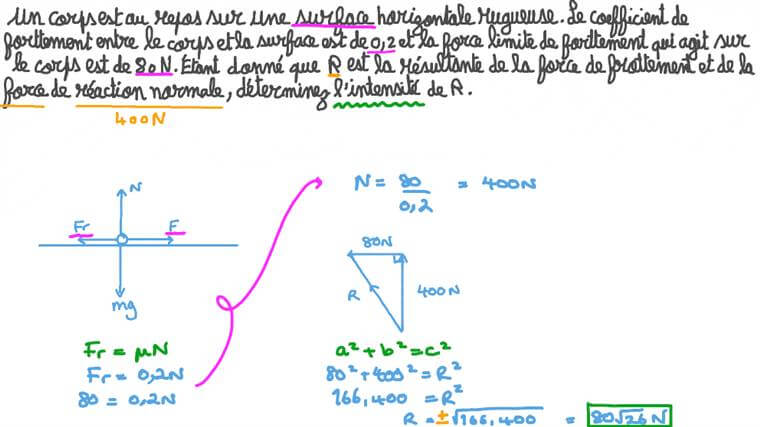 Un corps est au repos sur une surface horizontale rugueuse. Le coefficient de
forttement entre le corps et la surface est de 0,2 et la force limite de forttement qui agit sur
le corps est de 80 N. Étant donné que R est la résultante de la force de frottement et de la
force de réaction normale, déterminez l'intensité de R.
400N
N = 80/0,2 = 400N
N
Fr F
mg
80N
R
400N
Fr = μN
Fr = 0,2N
80 = 0,2N
a² + b² = c²
80² + 400² = R²
166,400 = R²
R = ±√166,400 = 80√26 N